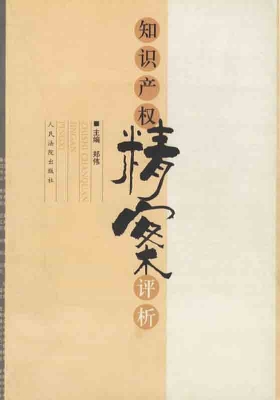 知识产权
精案
评析
主编 郑伟
ZHISHI CHANQUAN
JINGAN
PINGXI
人民法院出版社